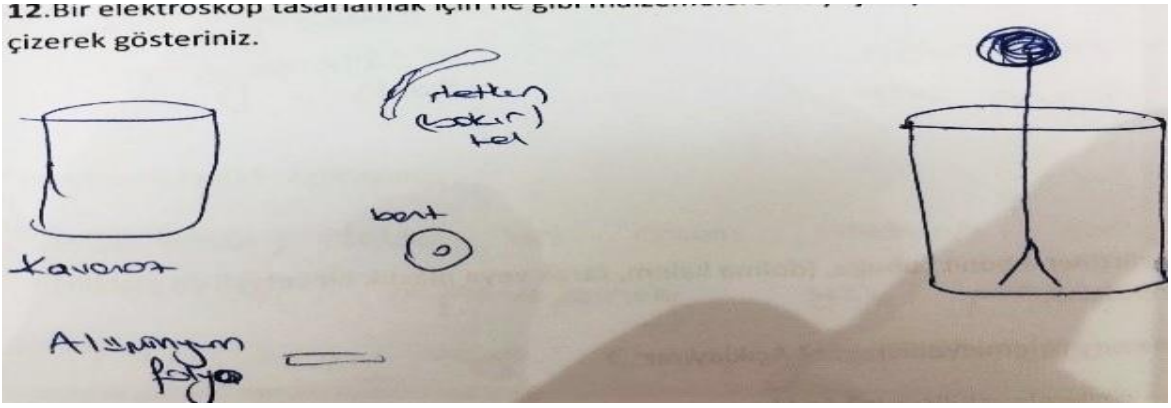 12.Bir elektroskop tasarlamak için ne gibi
çizerek gösteriniz.
iletken
(bakır)
tel
bant
Kavanoz
Alüminyum
folyo